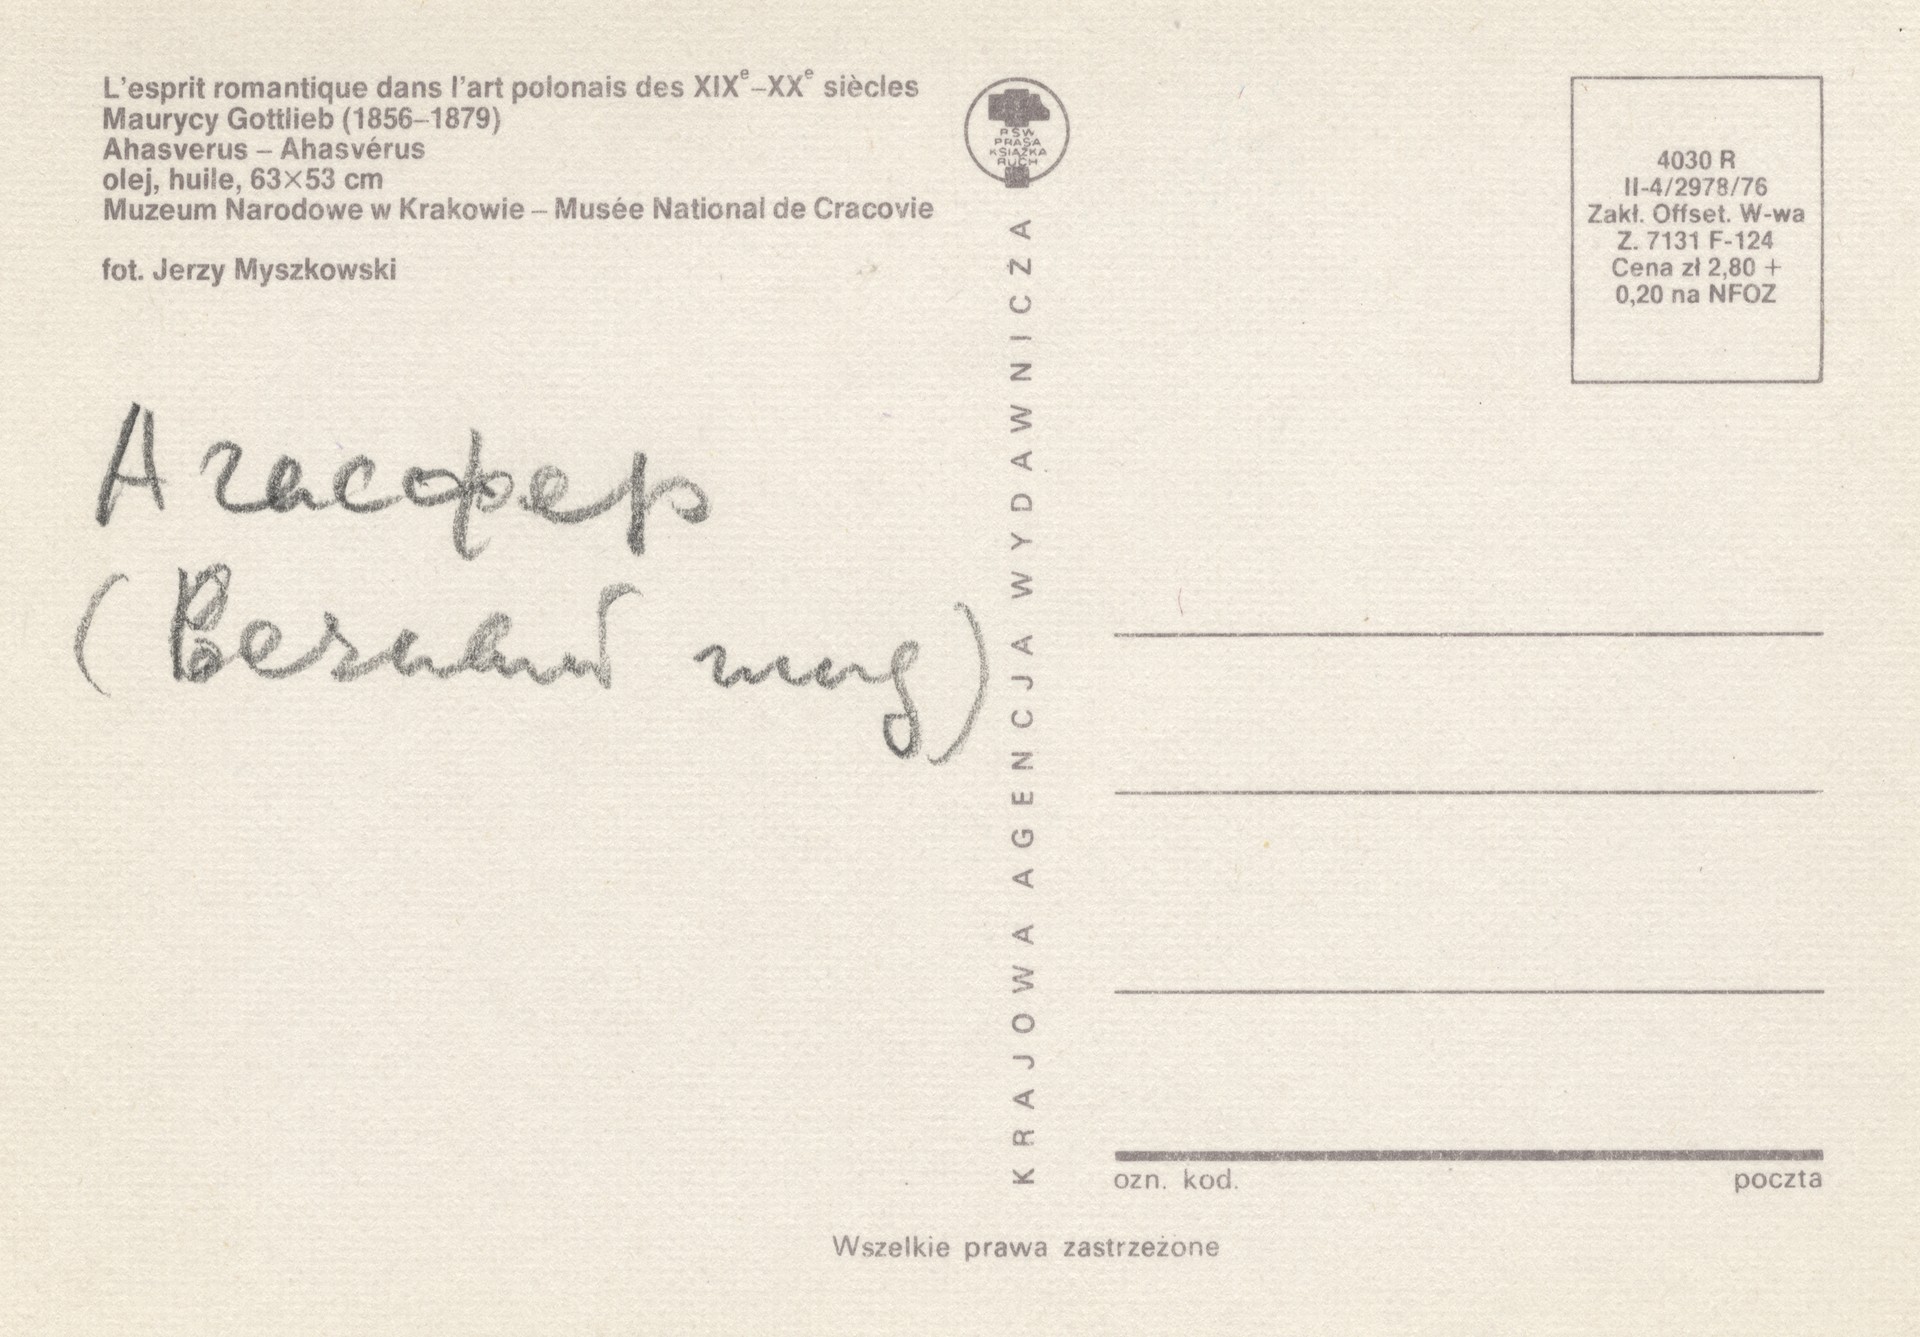 L'esprit romantique dans l'art polonais des XIXᵉ–XXᵉ siècles
Maurycy Gottlieb (1856–1879)
Ahasverus – Ahasvérus
olej, huile, 63×53 cm
Muzeum Narodowe w Krakowie – Musée National de Cracovie
fot. Jerzy Myszkowski
Агасфер
(Вечный жид)
RSW
PRASA
KSIĄŻKA
RUCH
KRAJOWA AGENCJA WYDAWNICZA
4030 R
II-4/2978/76
Zakł. Offset. W-wa
Z. 7131 F-124
Cena zł 2,80 +
0,20 na NFOZ
ozn. kod. poczta
Wszelkie prawa zastrzeżone